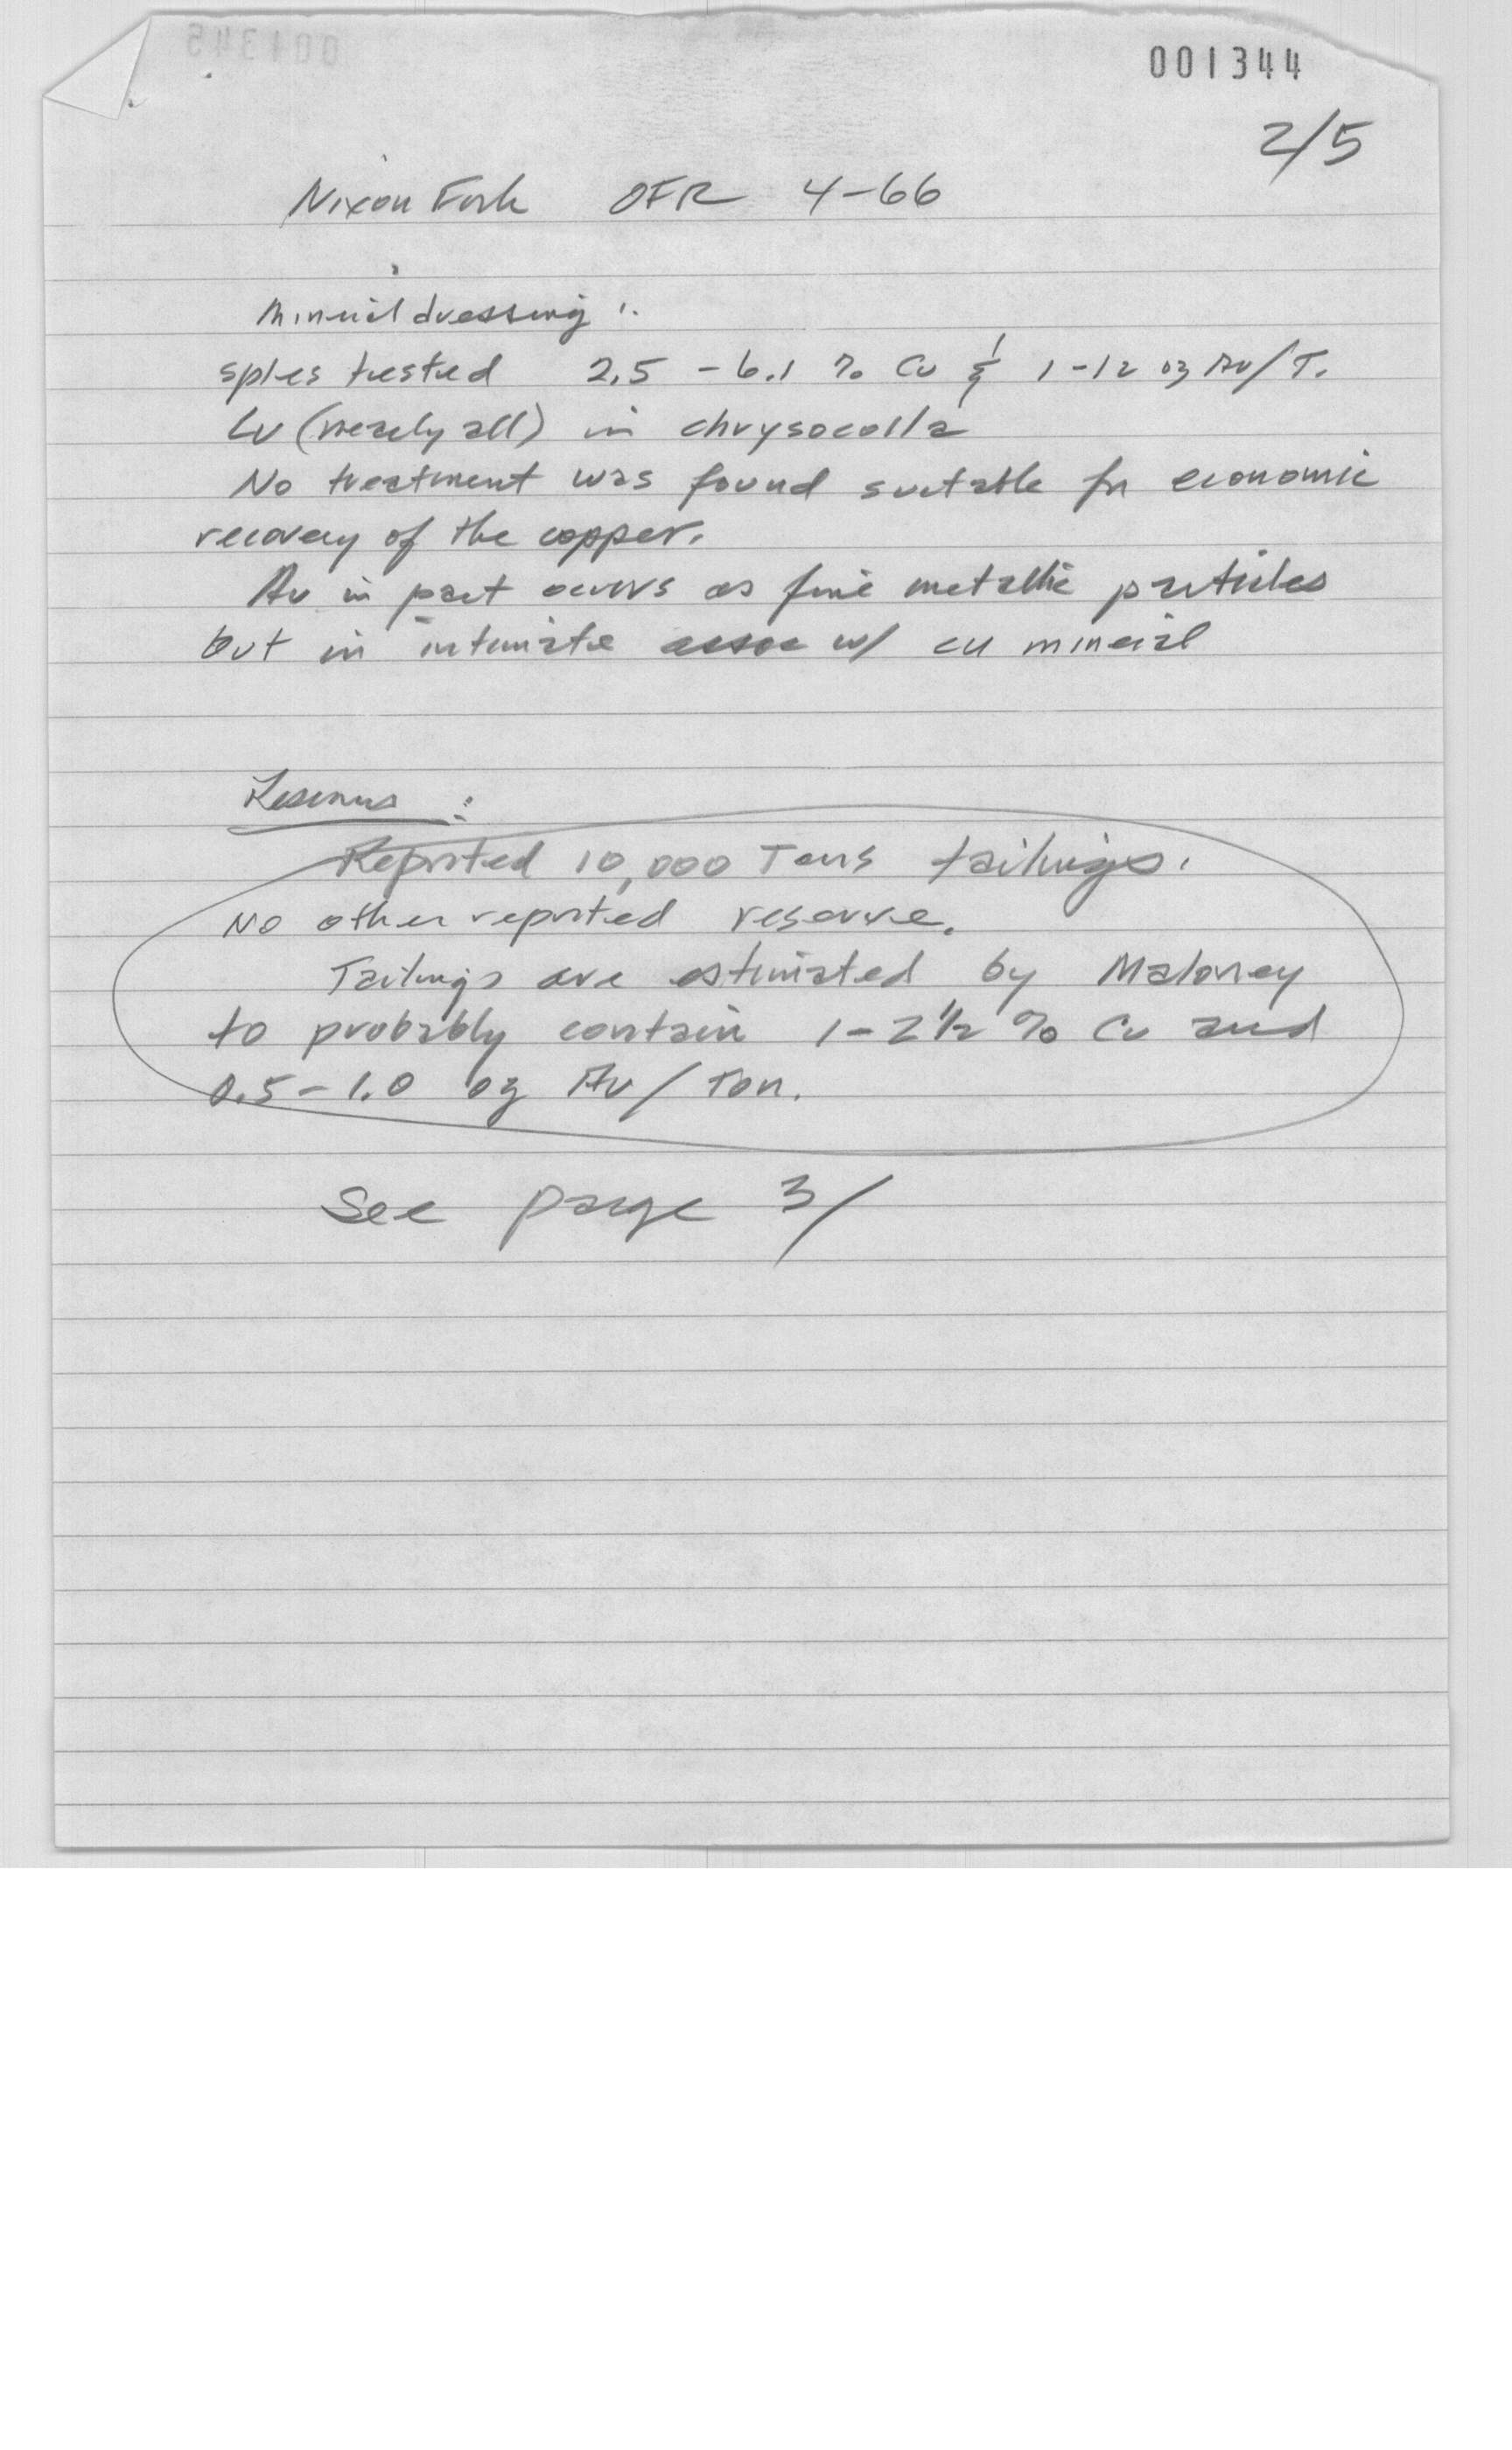 001344
2/5
Nixon Fork OFR 4-66
Mineral dressing :
sples tested 2.5 - 6.1 % Cu & 1-12 oz Au/T.
Cu (nearly all) in chrysocolla
No treatment was found suitable for economic
recovery of the copper.
Au in part occurs as fine metallic particles
but in intimate assoc w/ cu mineral
Reserves :
Reported 10,000 Tons tailings.
No other reported reserve.
Tailings are estimated by Maloney
to probably contain 1-2 1/2 % Cu and
0.5-1.0 oz Au/Ton.
See page 3/